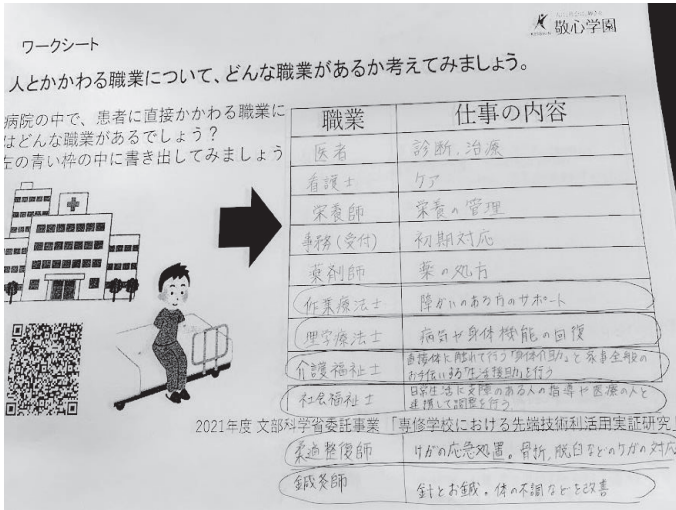 敬心学園
ワークシート
人とかかわる職業について、どんな職業があるか考えてみましょう。
病院の中で、患者に直接かかわる職業に
はどんな職業があるでしょう?
左の青い枠の中に書き出してみましょう
職業 仕事の内容
医者 診断、治療
看護士 ケア
栄養師 栄養の管理
事務(受付) 初期対応
薬剤師 薬の処方
作業療法士 障がいのある方のサポート
理学療法士 病気や身体機能の回復
介護福祉士 直接体に触れて行う「身体介助」と家事全般の
お手伝いする「生活援助」を行う
社会福祉士 日常生活に支障のある人の指導や医療の人と
連携して調整を行う
2021年度 文部科学省委託事業 「専修学校における先端技術利活用実証研究」
柔道整復師 けがの応急処置。骨折、脱臼などのケガの対応
鍼灸師 針とお鍼。体の不調などを改善